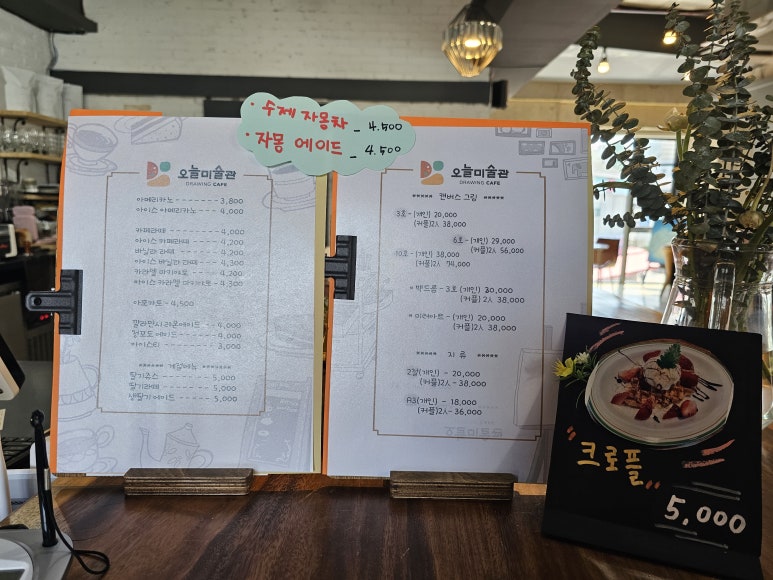 · 수제 자몽차 _ 4.500
· 자몽 에이드 _ 4.500
오늘미술관
DRAWING CAFE
아메리카노 - - - - - - - 3,800
아이스 아메리카노 - - - - 4,000
카페라떼 - - - - - - - - 4,000
아이스 카페라떼 - - - - - 4,200
바닐라 라떼 - - - - - - - 4,200
아이스 바닐라 라떼 - - - - 4,300
카라멜 마끼아또 - - - - - 4,200
아이스 카라멜 마끼아또 - 4,300
아포카토 - 4,500
깔라만시 레몬에이드 - - 4,000
청포도 에이드 - - - - - 4,000
아이스티 - - - - - - - - 3,000
***** 계절메뉴 *******
딸기쥬스 - - - - - - 5,000
딸기라떼 - - - - - - 5,000
생딸기 에이드 - - - - 5,000
오늘미술관
DRAWING CAFE
***** 캔버스 그림 *****
3호 - (개인) 20,000
(커플)2人 38,000
6호 - (개인) 29,000
(커플)2人 56,000
10호 - (개인) 38,000
(커플)2人 74,000
* 박드름 - 3호 (개인) 20,000
(커플)2人 38,000
* 미러아트 - (개인) 20,000
(커플)2人 38,000
***** 지 류 *****
2절(개인) - 20,000
(커플)2人 - 38,000
A3(개인) - 18,000
(커플)2人 - 36,000
"크로플"
5,000